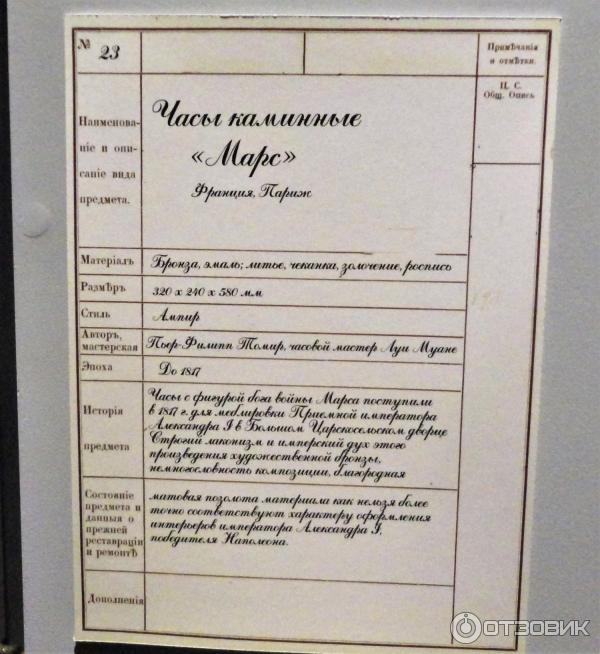 № 23
Примѣчанія
и отмѣтки.
Ц. С.
Общ. Опись
Наименова-
ніе и опи-
саніе вида
предмета.
Часы каминные
«Марс»
Франция, Париж
Матеріалъ
Бронза, эмаль; литье, чеканка, золочение, роспись
Размѣръ
320 x 240 x 580 мм
Стиль
Ампир
Авторъ,
мастерская
Пьер-Филипп Томир, часовой мастер Луи Муане
Эпоха
До 1817
Исторія
предмета
Часы с фигурой бога войны Марса поступили
в 1817 г. для меблировки Приемной императора
Александра I в Большом Царскосельском дворце
Строгий лаконизм и имперский дух этого
произведения художественной бронзы,
немногословность композиции, благородная
Состояніе
предмета и
данныя о
прежней
реставраціи
и ремонтѣ
матовая позолота материала как нельзя более
точно соответствуют характеру оформления
интерьеров императора Александра I,
победителя Наполеона.
Дополненія
ОТЗОВИК